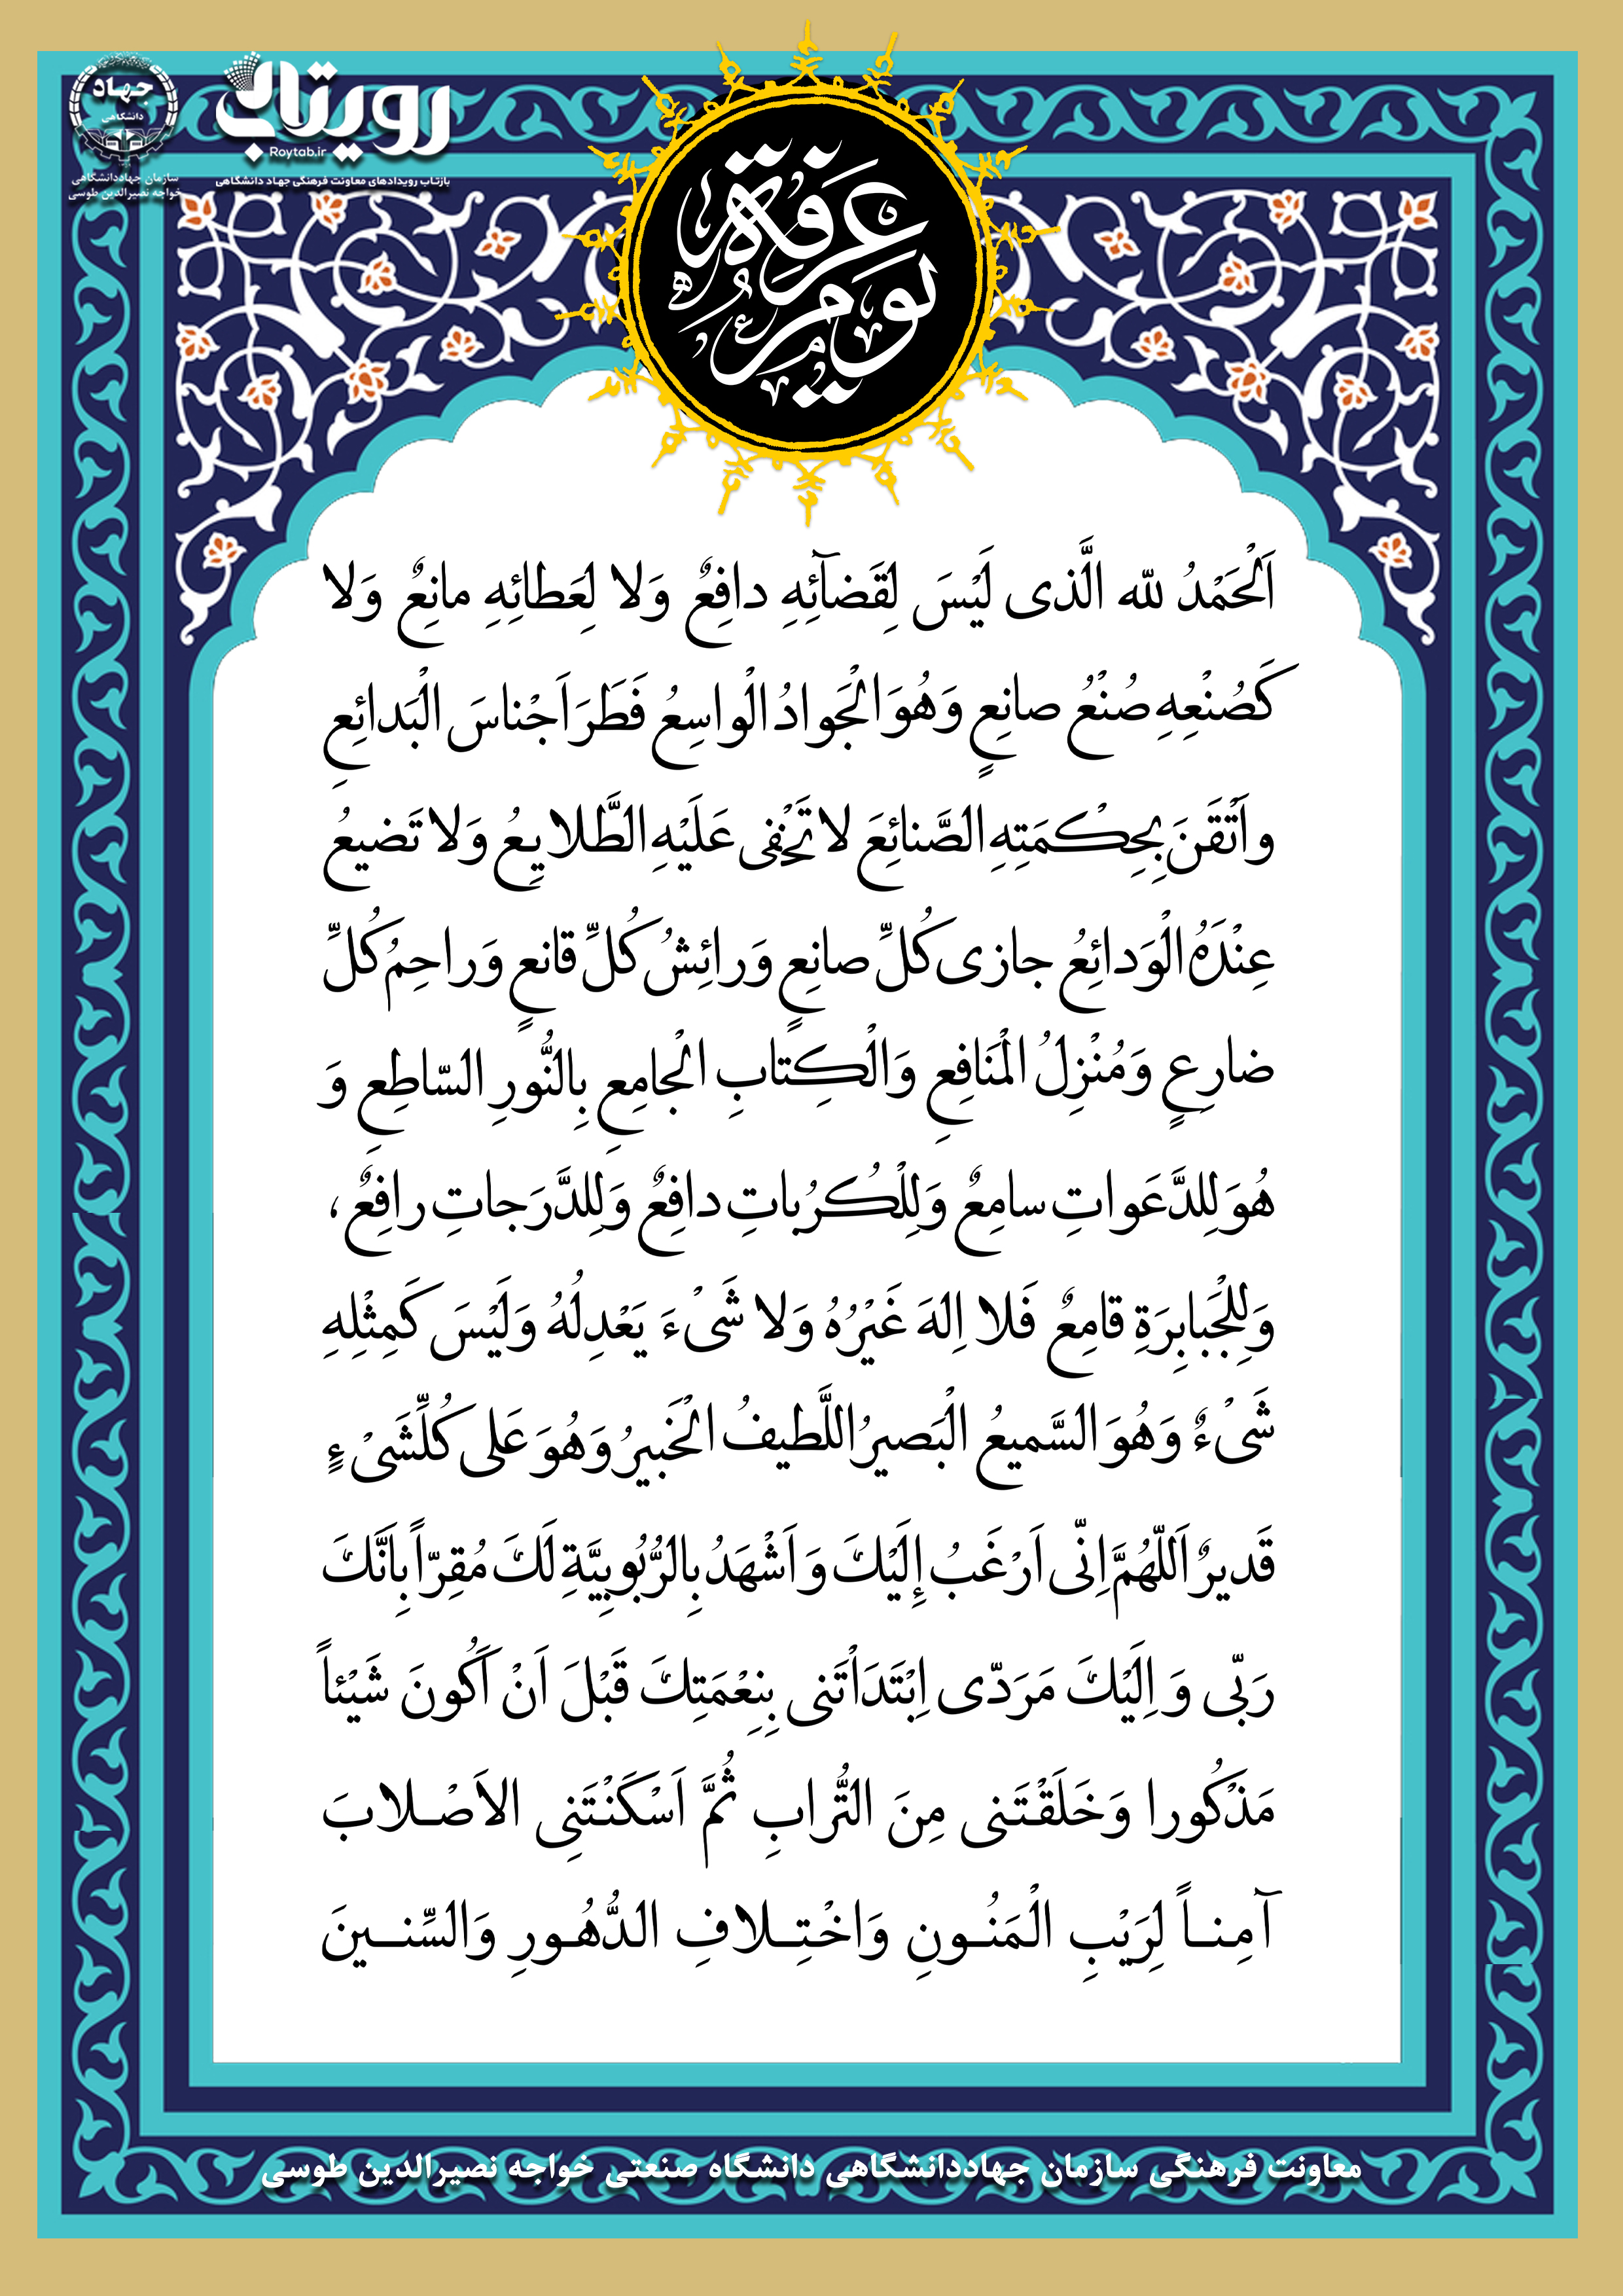 جهاد
دانشگاهی
سازمان جهاددانشگاهی
خواجه نصیرالدین طوسی
رویتاب
Roytab.ir
بازتاب رویدادهای معاونت فرهنگی جهاد دانشگاهی
یوم عرفة
اَلْحَمْدُ لله الَّذی لَیْسَ لِقَضآئِهِ دافِعٌ وَلا لِعَطائِهِ مانِعٌ وَلا
کَصُنْعِهِ صُنْعُ صانِعٍ وَهُوَ الْجَوادُ الْواسِعُ فَطَرَ اَجْناسَ الْبَدائِعِ
واَتْقَنَ بِحِکْمَتِهِ الصَّنائِعَ لا تَخْفی عَلَیْهِ الطَّلایِـعُ وَلا تَضیعُ
عِنْدَهُ الْوَدائِعُ جازی کُلِّ صانِعٍ وَرائِشُ کُلِّ قانعٍ وَراحِمُ کُلِّ
ضارِعٍ وَمُنْزِلُ الْمَنَافِعِ وَالْکِتابِ الْجامِعِ بِالنُّورِ السّاطِعِ وَ
هُوَ لِلدَّعَواتِ سامِعٌ وَلِلْکُرُباتِ دافِعٌ وَلِلدَّرَجاتِ رافِعٌ ،
وَلِلْجَبابِرَةِ قامِعٌ فَلا اِلهَ غَیْرُهُ وَلا شَیْءَ یَعْدِلُهُ وَلَیْسَ کَمِثْلِهِ
شَیْءٌ وَهُوَ السَّمیعُ الْبَصیرُ اللَّطیفُ الْخَبیرُ وَهُوَ عَلی کُلِّشَیْءٍ
قَدیرٌ اَللّهُمَّ اِنّی اَرْغَبُ إِلَیْکَ وَ اَشْهَدُ بِالرُّبُوبِیَّةِ لَکَ مُقِرّاً بِاَنَّکَ
رَبّی وَ اِلَیْکَ مَرَدّی اِبْتَدَاْتَنی بِنِعْمَتِکَ قَبْلَ اَنْ اَکُونَ شَیْئاً
مَذْکُورا وَخَلَقْتَنی مِنَ التُّرابِ ثُمَّ اَسْکَنْتَنِی الاَصْـلابَ
آمِنـاً لِرَیْبِ الْمَنُـونِ وَاخْتِـلافِ الدُّهُـورِ وَالسِّنــینَ
معاونت فرهنگی سازمان جهاددانشگاهی دانشگاه صنعتی خواجه نصیرالدین طوسی